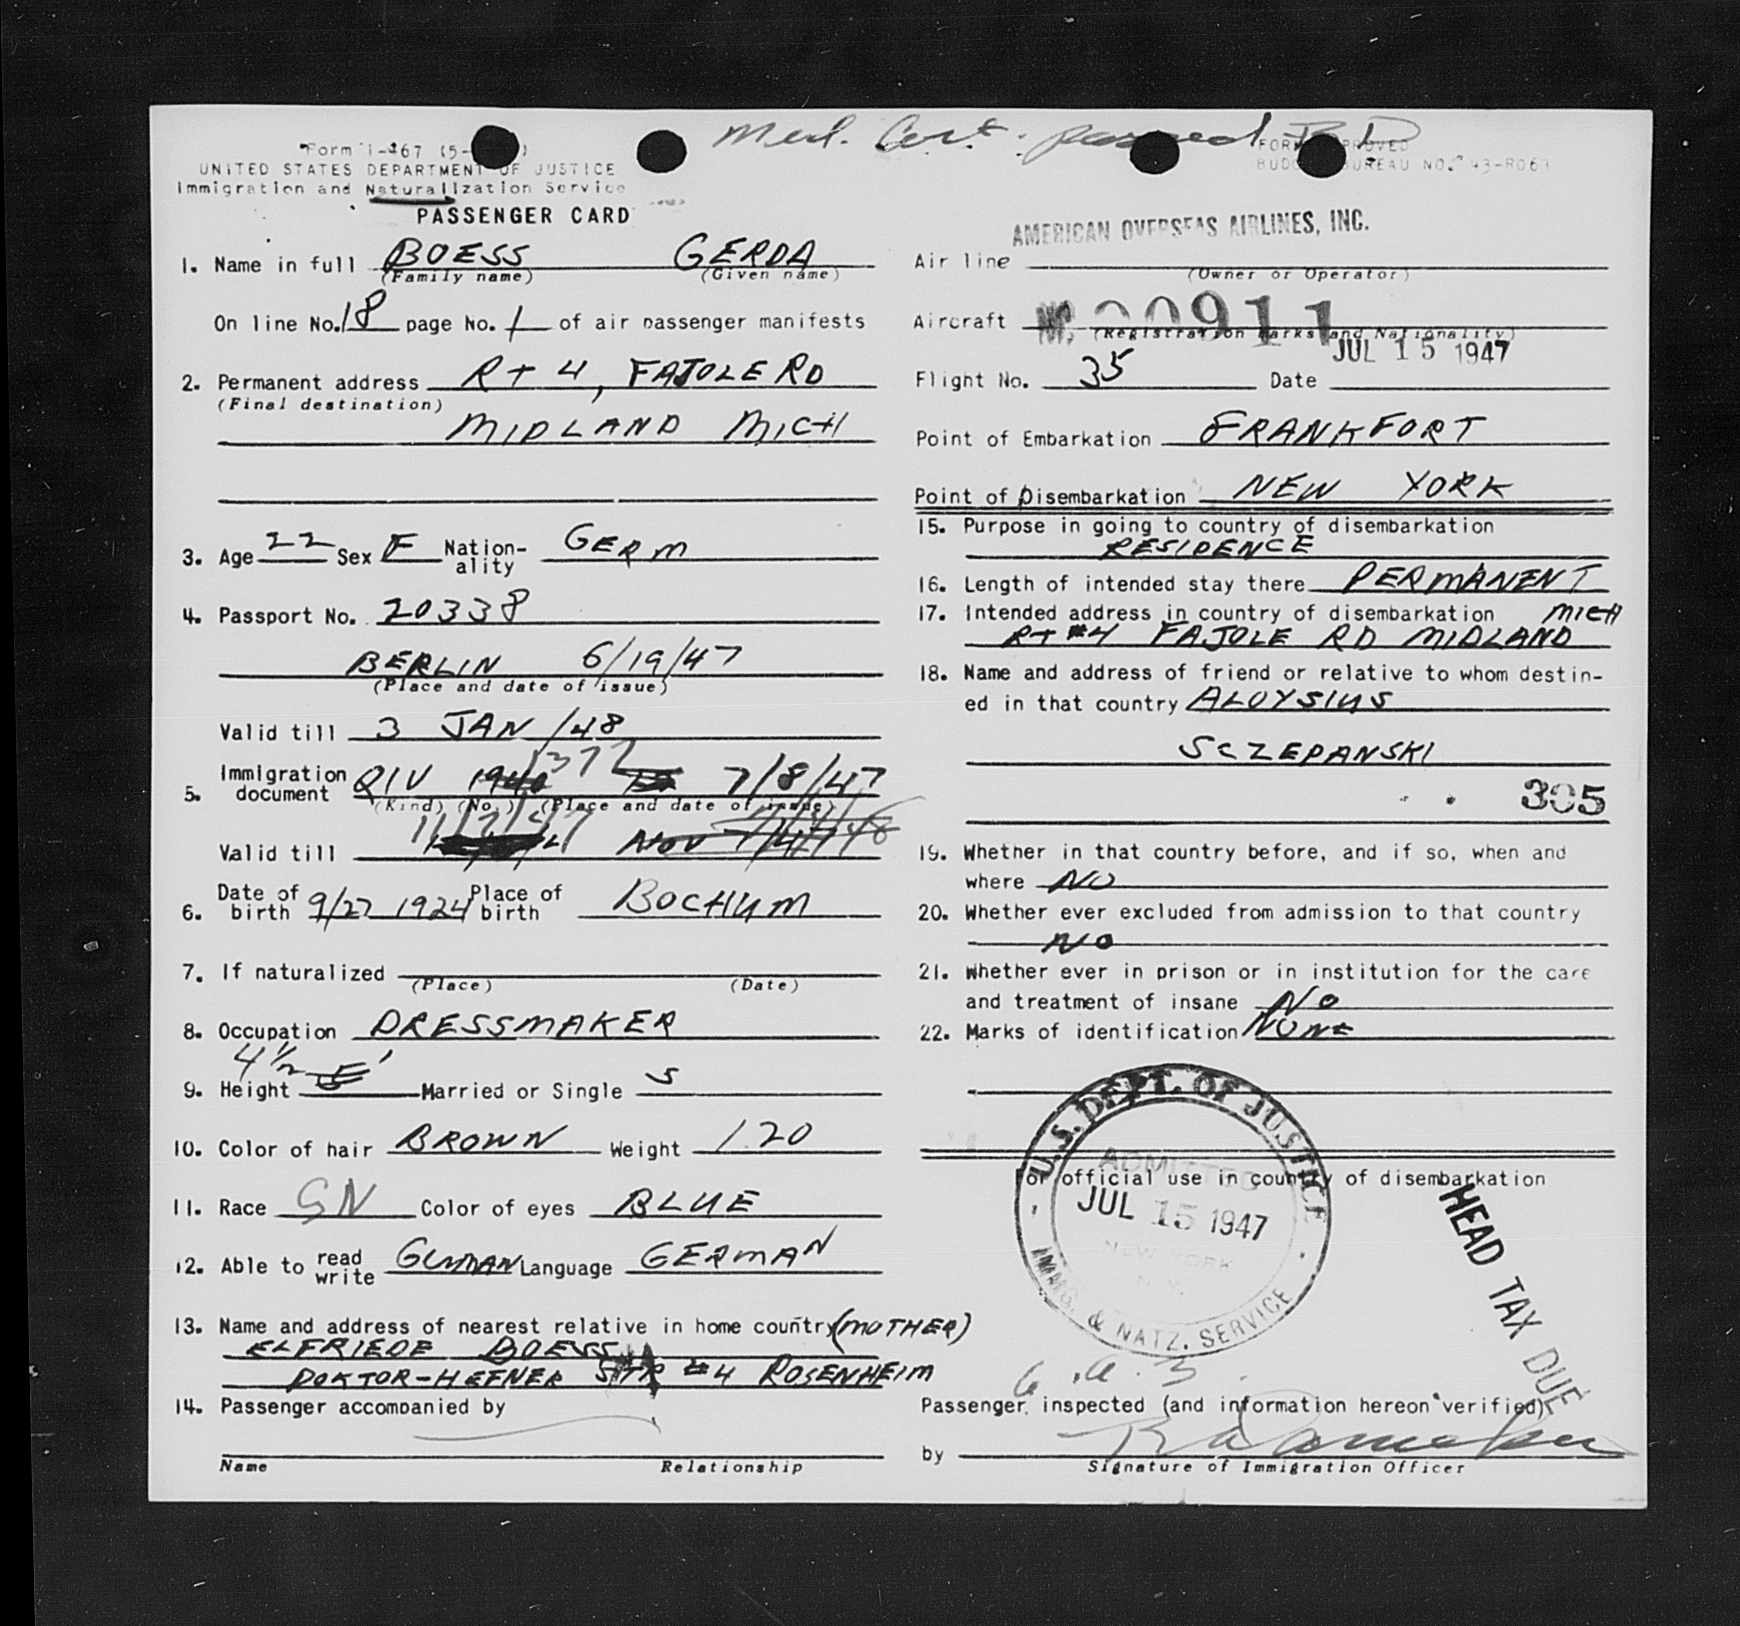 Med. Cert. passed
Form I-467 (5-
UNITED STATES DEPARTMENT OF JUSTICE
Immigration and Naturalization Service
PASSENGER CARD
1. Name in full BOESS GERDA
(Family name) (Given name)
On line No. 18 page No. 1 of air passenger manifests
2. Permanent address RT 4, FAJOLE RD
(Final destination)
MIDLAND MICH
3. Age 22 Sex F Nation-ality GERM
4. Passport No. 20338
BERLIN 6/19/47
(Place and date of issue)
Valid till 3 JAN/48
5. Immigration document QIV 1372 7/8/47
(Kind) (No.) (Place and date of issue)
Valid till 11/7/47
6. Date of birth 9/27 1924 Place of birth BOCHUM
7. If naturalized
(Place) (Date)
8. Occupation DRESSMAKER
9. Height 4½ 5' Married or Single S
10. Color of hair BROWN Weight 120
11. Race GN Color of eyes BLUE
12. Able to read write GERMAN Language GERMAN
13. Name and address of nearest relative in home country (MOTHER)
ELFRIEDE BOESS
DOKTOR-HEFNER STR #4 ROSENHEIM
14. Passenger accompanied by
Name Relationship
FORM APPROVED
BUDGET BUREAU NO. 43-R063
AMERICAN OVERSEAS AIRLINES, INC.
Air line
(Owner or Operator)
Aircraft NC 90911
(Registration Marks and Nationality)
JUL 15 1947
Flight No. 35 Date
Point of Embarkation FRANKFORT
Point of Disembarkation NEW YORK
15. Purpose in going to country of disembarkation
RESIDENCE
16. Length of intended stay there PERMANENT
17. Intended address in country of disembarkation MICH
RT #4 FAJOLE RD MIDLAND
18. Name and address of friend or relative to whom destin-
ed in that country ALOYSIUS
SCZEPANSKI
305
19. Whether in that country before, and if so, when and
where NO
20. Whether ever excluded from admission to that country
NO
21. Whether ever in prison or in institution for the care
and treatment of insane NO
22. Marks of identification NONE
For official use in country of disembarkation
U.S. DEPT. OF JUSTICE
ADMITTED
JUL 15 1947
NEW YORK
N.Y.
IMMIG. & NATZ. SERVICE
HEAD TAX DUE
Passenger inspected (and information hereon verified)
by
Signature of Immigration Officer